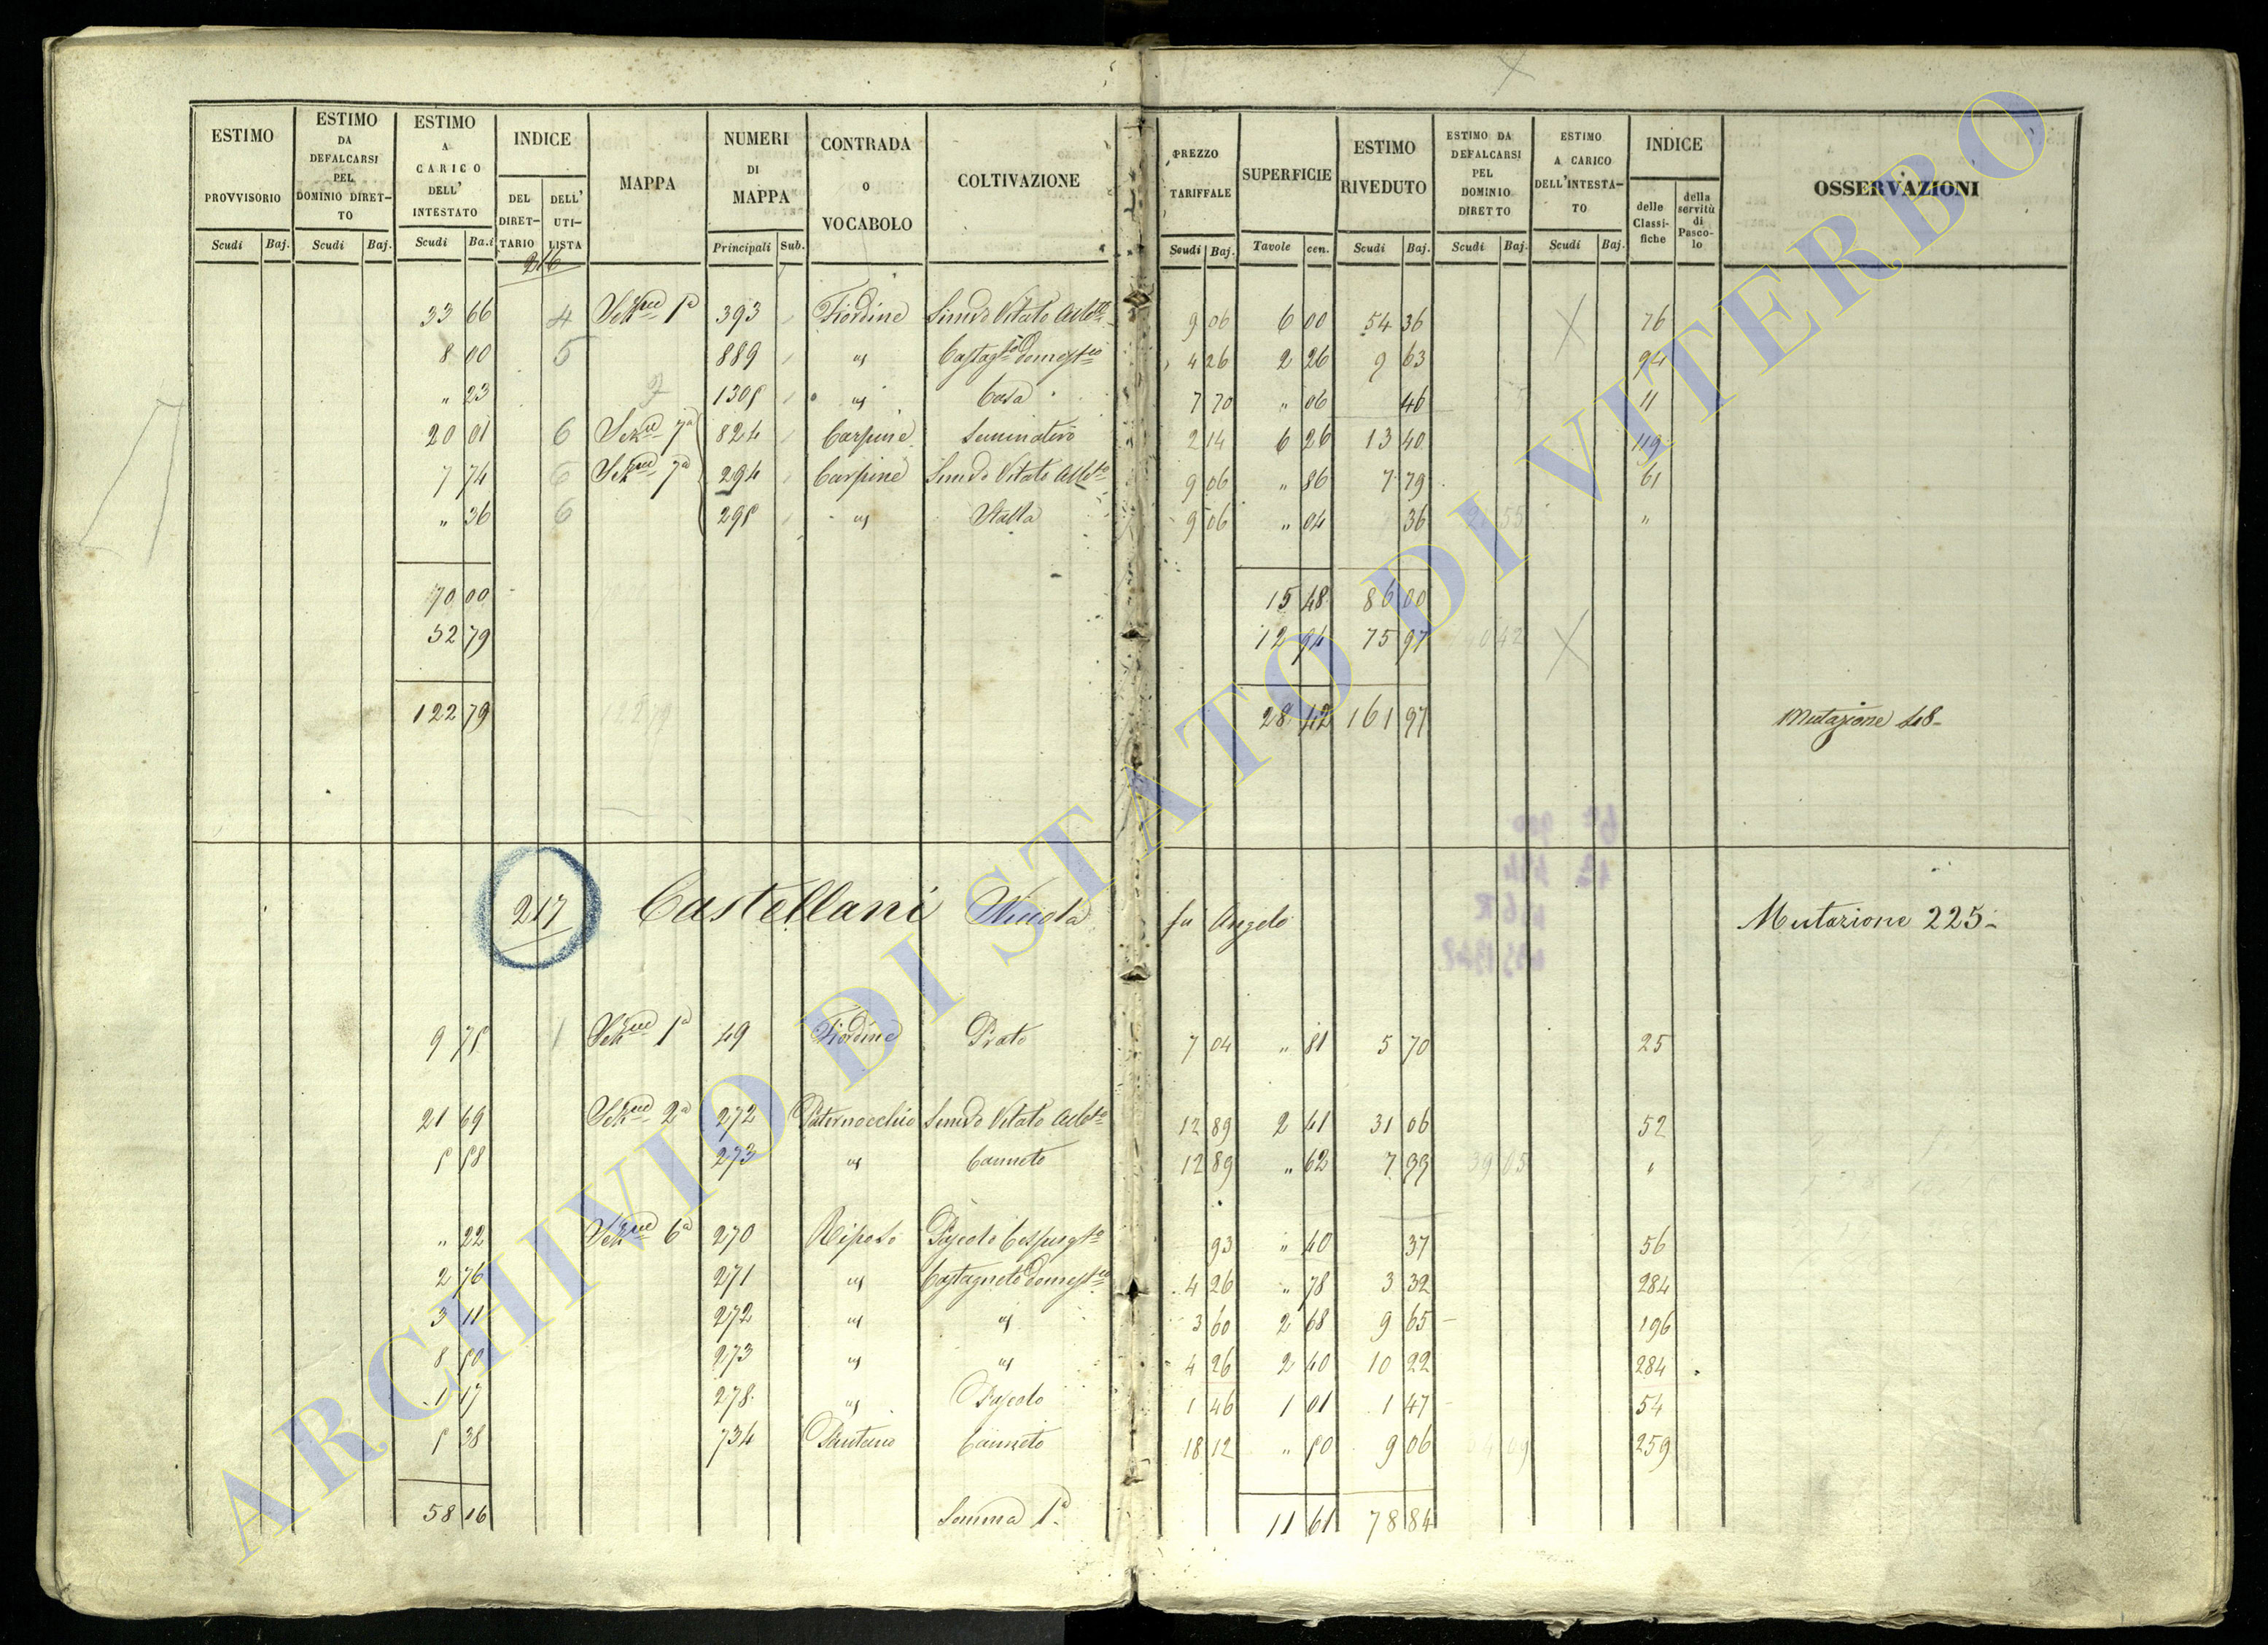 ESTIMO PROVVISORIO Scudi Baj.
ESTIMO DA DEFALCARSI PEL DOMINIO DIRET-TO Scudi Baj.
ESTIMO A CARICO DELL' INTESTATO Scudi Ba.i
INDICE DEL DIRET-TARIO DELL' UTI-LISTA
MAPPA
NUMERI DI MAPPA Principali Sub.
CONTRADA O VOCABOLO
COLTIVAZIONE
PREZZO TARIFFALE Scudi Baj.
SUPERFICIE Tavole cen.
ESTIMO RIVEDUTO Scudi Baj.
ESTIMO DA DEFALCARSI PEL DOMINIO DIRETTO Scudi Baj.
ESTIMO A CARICO DELL'INTESTA-TO Scudi Baj.
INDICE delle Classi-fiche della servitù di Pasco-lo
OSSERVAZIONI
216
33 66 4 Sezne 1a 393 Fiordine Semvo Vitato Albto 9 06 6 00 54 36 76
8 00 5 889 " Castagto Domestco 4 26 2 26 9 63 94
" 23 1305 " Casa 7 70 " 06 46 11
20 01 6 Sezne 7a 824 Carpine Seminativo 2 14 6 26 13 40 119
7 74 6 Sezne 7a 294 Carpine Semvo Vitato Albto 9 06 " 86 7 79 61
" 36 6 295 " Stalla 9 06 " 04 36 "
70 00 15 48 86 00
52 79 12 94 75 97
122 79 28 42 161 97 Mutazione 48
217 Castellani Nicola fu Angelo Mutazione 225
9 75 1 Sezne 1a 49 Fiordine Prato 7 04 " 81 5 70 25
21 69 Sezne 2a 272 Paternocchio Semvo Vitato Albto 12 89 2 41 31 06 52
5 58 273 " Canneto 12 89 " 62 7 99 "
" 22 Sezne 6a 270 Riposo Pascolo Cespugto 93 " 40 37 56
2 76 271 " Castagneto Domestco 4 26 " 78 3 32 284
3 11 272 " " 3 60 2 68 9 65 196
8 50 273 " " 4 26 2 40 10 22 284
1 17 278 " Pascolo 1 46 1 01 1 47 54
5 38 734 Pantano Canneto 18 12 " 50 9 06 259
58 16 Somma 1a 11 61 78 84
ARCHIVIO DI STATO DI VITERBO